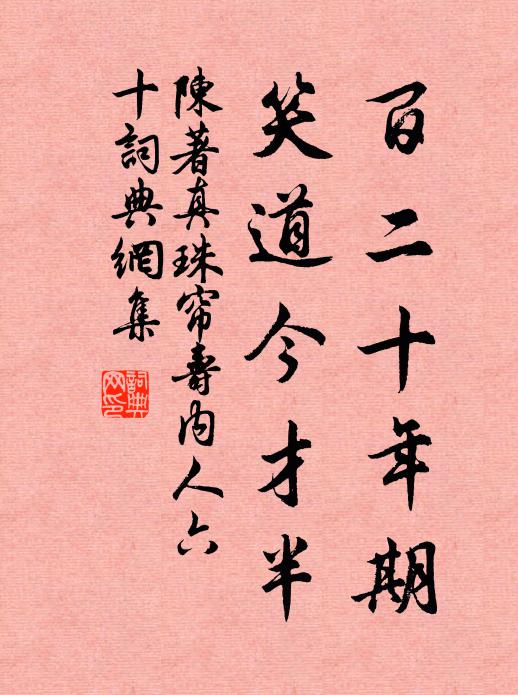 百二十年期
笑道今才半
陳著真珠帘壽内人六
十詞典網集
詞典
网印